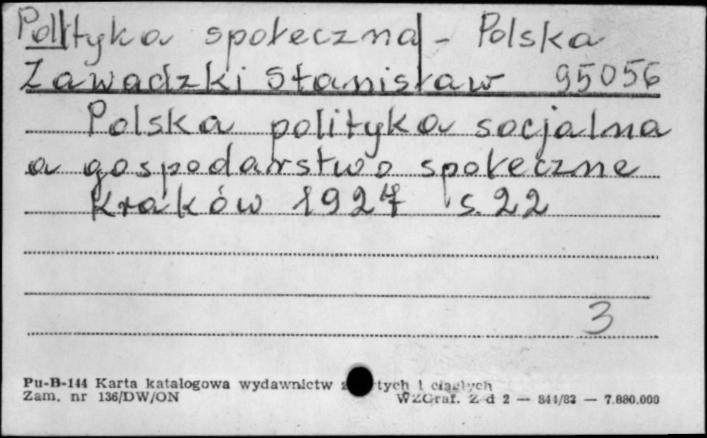 Polityka społeczna - Polska
Zawadzki Stanisław 95056
Polska polityka socjalna
a gospodarstwo społeczne
Kraków 1927 s. 22
3
Pu-B-144 Karta katalogowa wydawnictw i ciągłych
Zam. nr 136/DW/ON WZGraf. Z-d 2 — 844/82 — 7.880.000